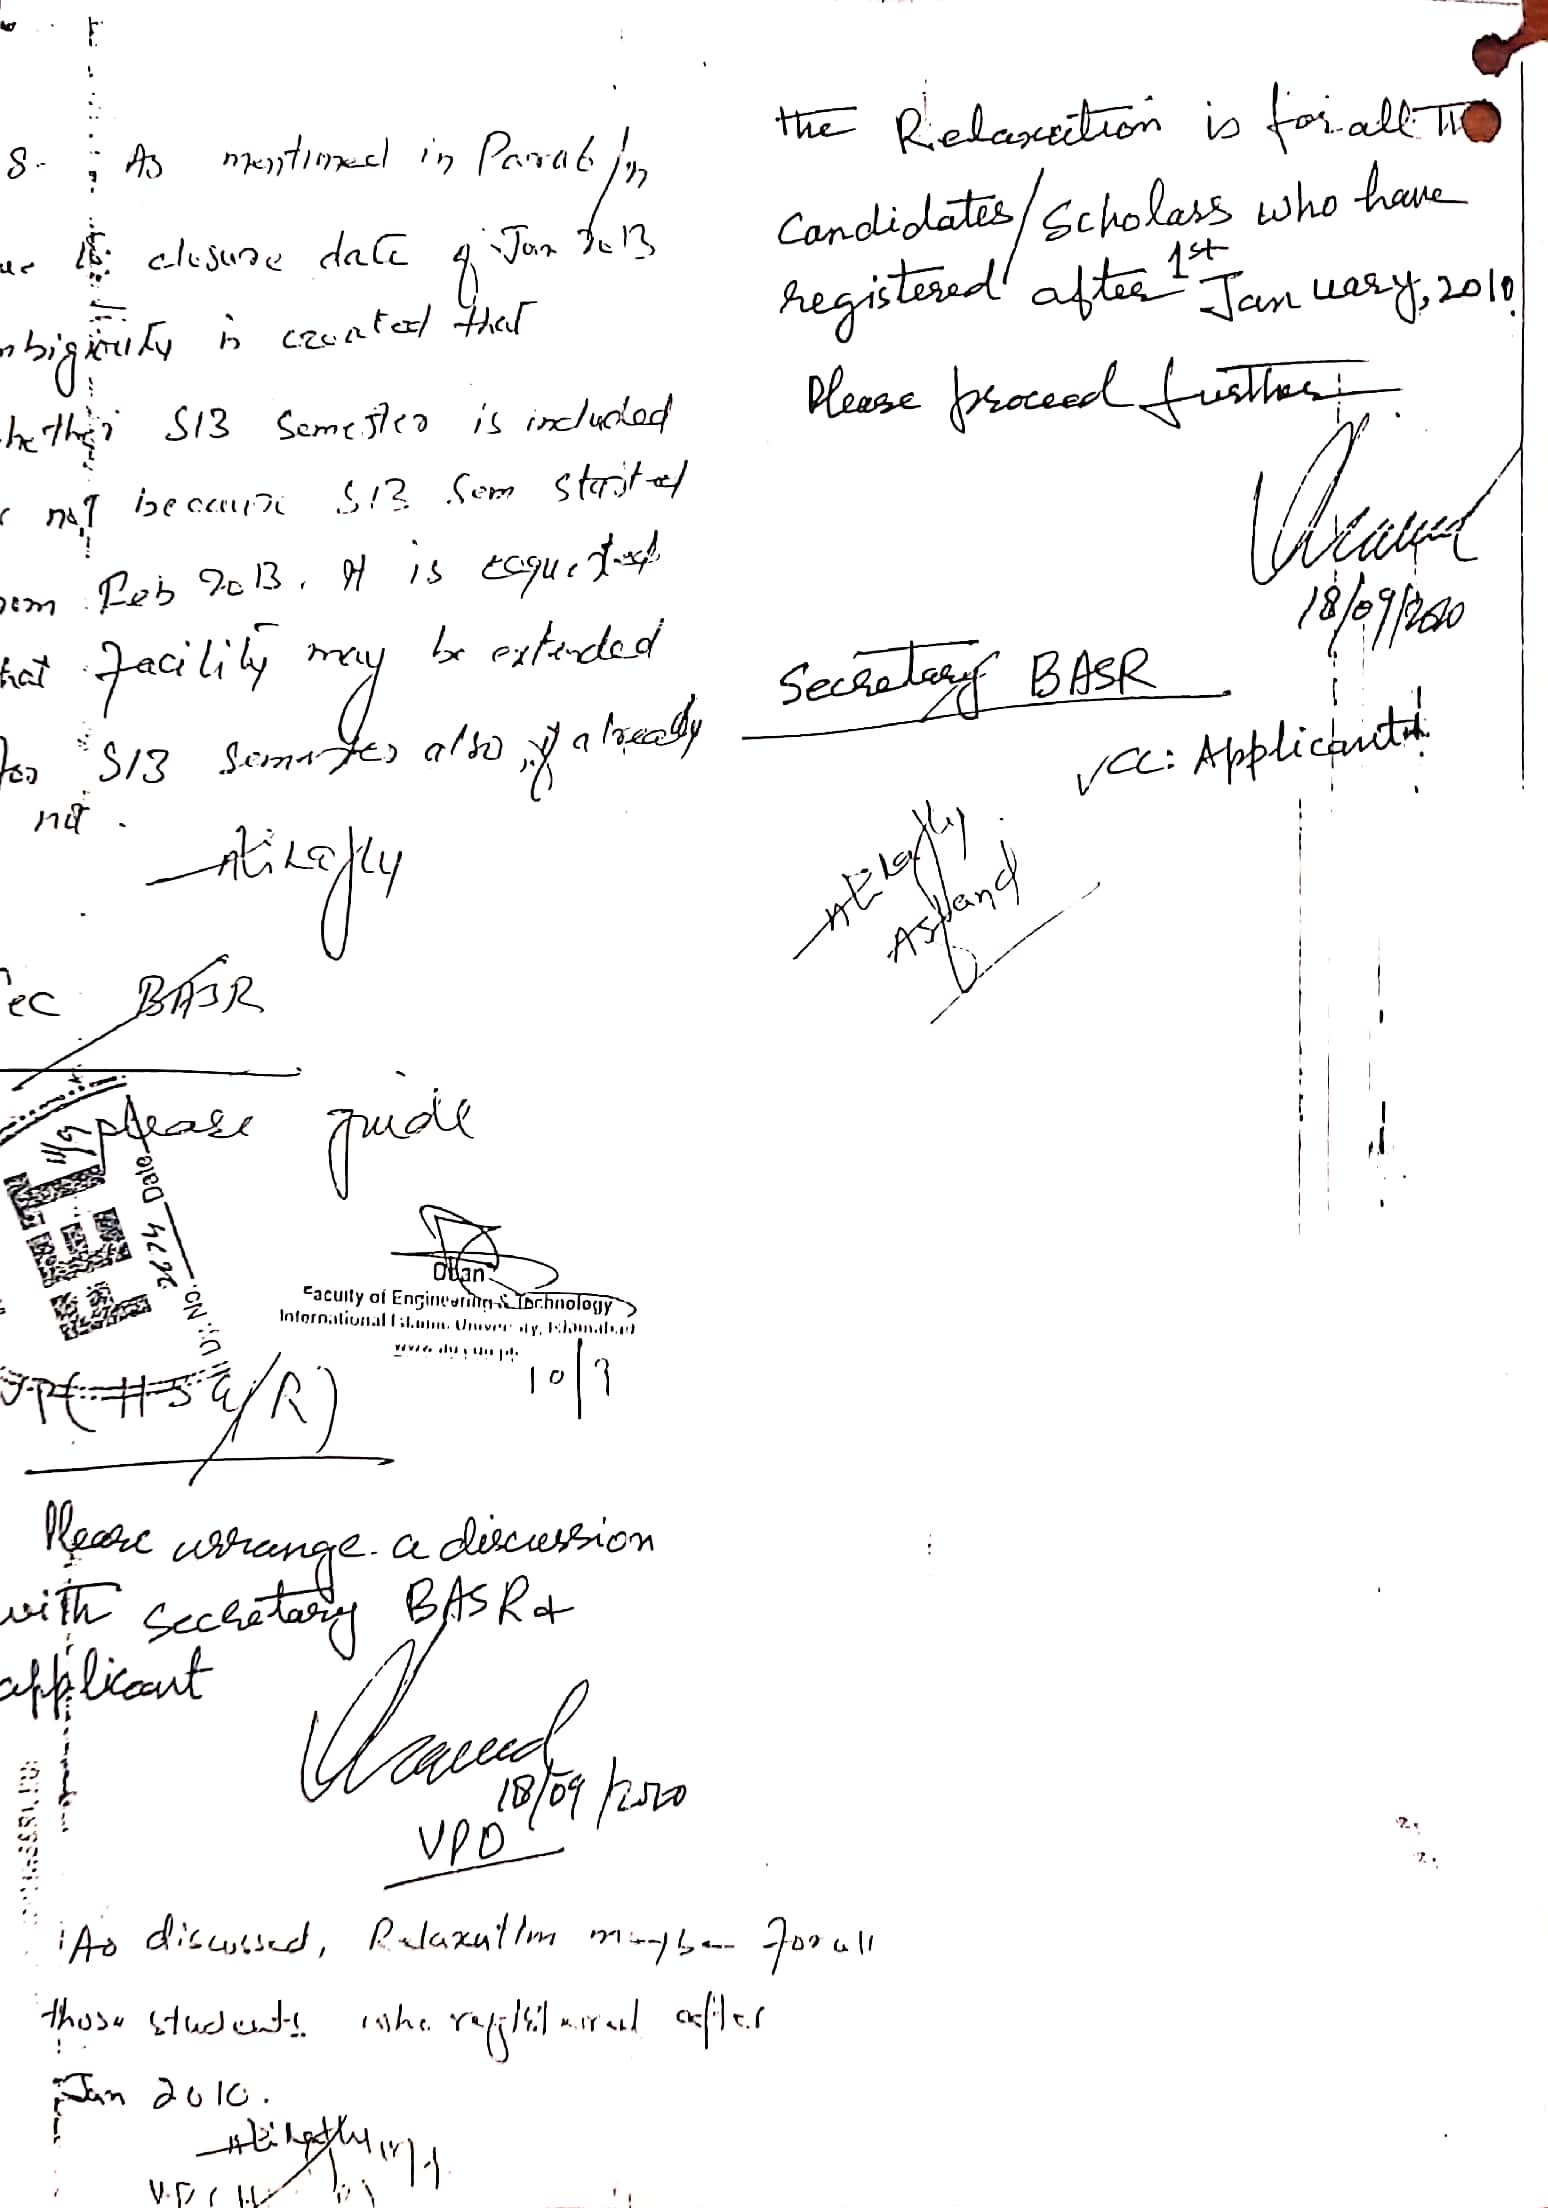 8- As mentioned in Para 6/n
closure date of Jan 2013
is created that
S13 Semester is included
not because S13 Sem started
Feb 2013. It is requested
facility may be extended
S13 Semester also, if already
not.
BASR
please guide
Date
No.
Dean
Faculty of Engineering & Technology
International Islamic University, Islamabad
10/9
Please arrange a discussion
with Secretary BASR &
applicant
18/09/2020
VPO
As discussed, Relaxation may be for all
those students who registered after
Jan 2010.
the Relaxation is for all
Candidates/Scholars who have
registered after 1st January, 2010.
Please proceed further.
18/09/2020
Secretary BASR
CC: Applicant
Asfand